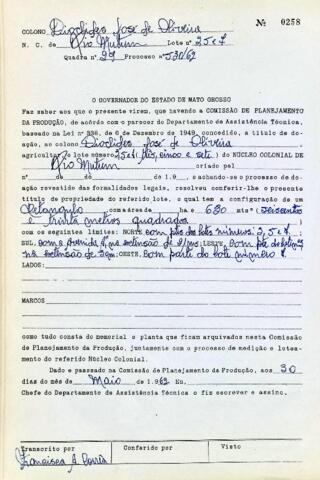 COLONO Dioclides José de Oliveira Nº 0258
N. C. de Rio Mutum Lote nº 3 5 e 7
Quadra nº 29 Processo nº 530/62
O GOVERNADOR DO ESTADO DE MATO GROSSO
Faz saber aos que o presente virem, que havendo a COMISSÃO DE PLANEJAMENTO
DA PRODUÇÃO, de acôrdo com o parecer do Departamento de Assistência Técnica,
baseado na Lei nº 336, de 6 de Dezembro de 1949, concedido, a título de do-
ação, ao colono Dioclides José de Oliveira
agricultor o lote número (três, cinco e sete) do NÚCLEO COLONIAL DE
Rio Mutum criado pel
nº de do de de 1.9 , achando-se o processo de do-
ação revestido das formalidades legais, resolveu conferir-lhe o presente
título de propriedade do referido lote, o qual tem a configuração de um
Retangulo com a área de ha e 630 mts² (seiscentos
e trinta metros quadrados )
com os seguintes limites: NORTE com pte dos lotes números 3, 5 e 7;
SUL com a avenida na extensão de 21 ms; LESTE, com pte do lote nº
na extensão de 30m; OESTE. com parte do lote número
LADOS:
MARCOS
como tudo consta do memorial e planta que ficam arquivados nesta Comissão
de Planejamento da Produção, juntamente com o processo de medição e lotea-
mento do referido Núcleo Colonial.
Dado e passado na Comissão de Planejamento da Produção, aos 30
dias do mês de Maio de 1.962 Eu,
Chefe do Departamento de Assistência Técnica o fiz escrever e assino.
Transcrito por Conferido por Visto
Francisca